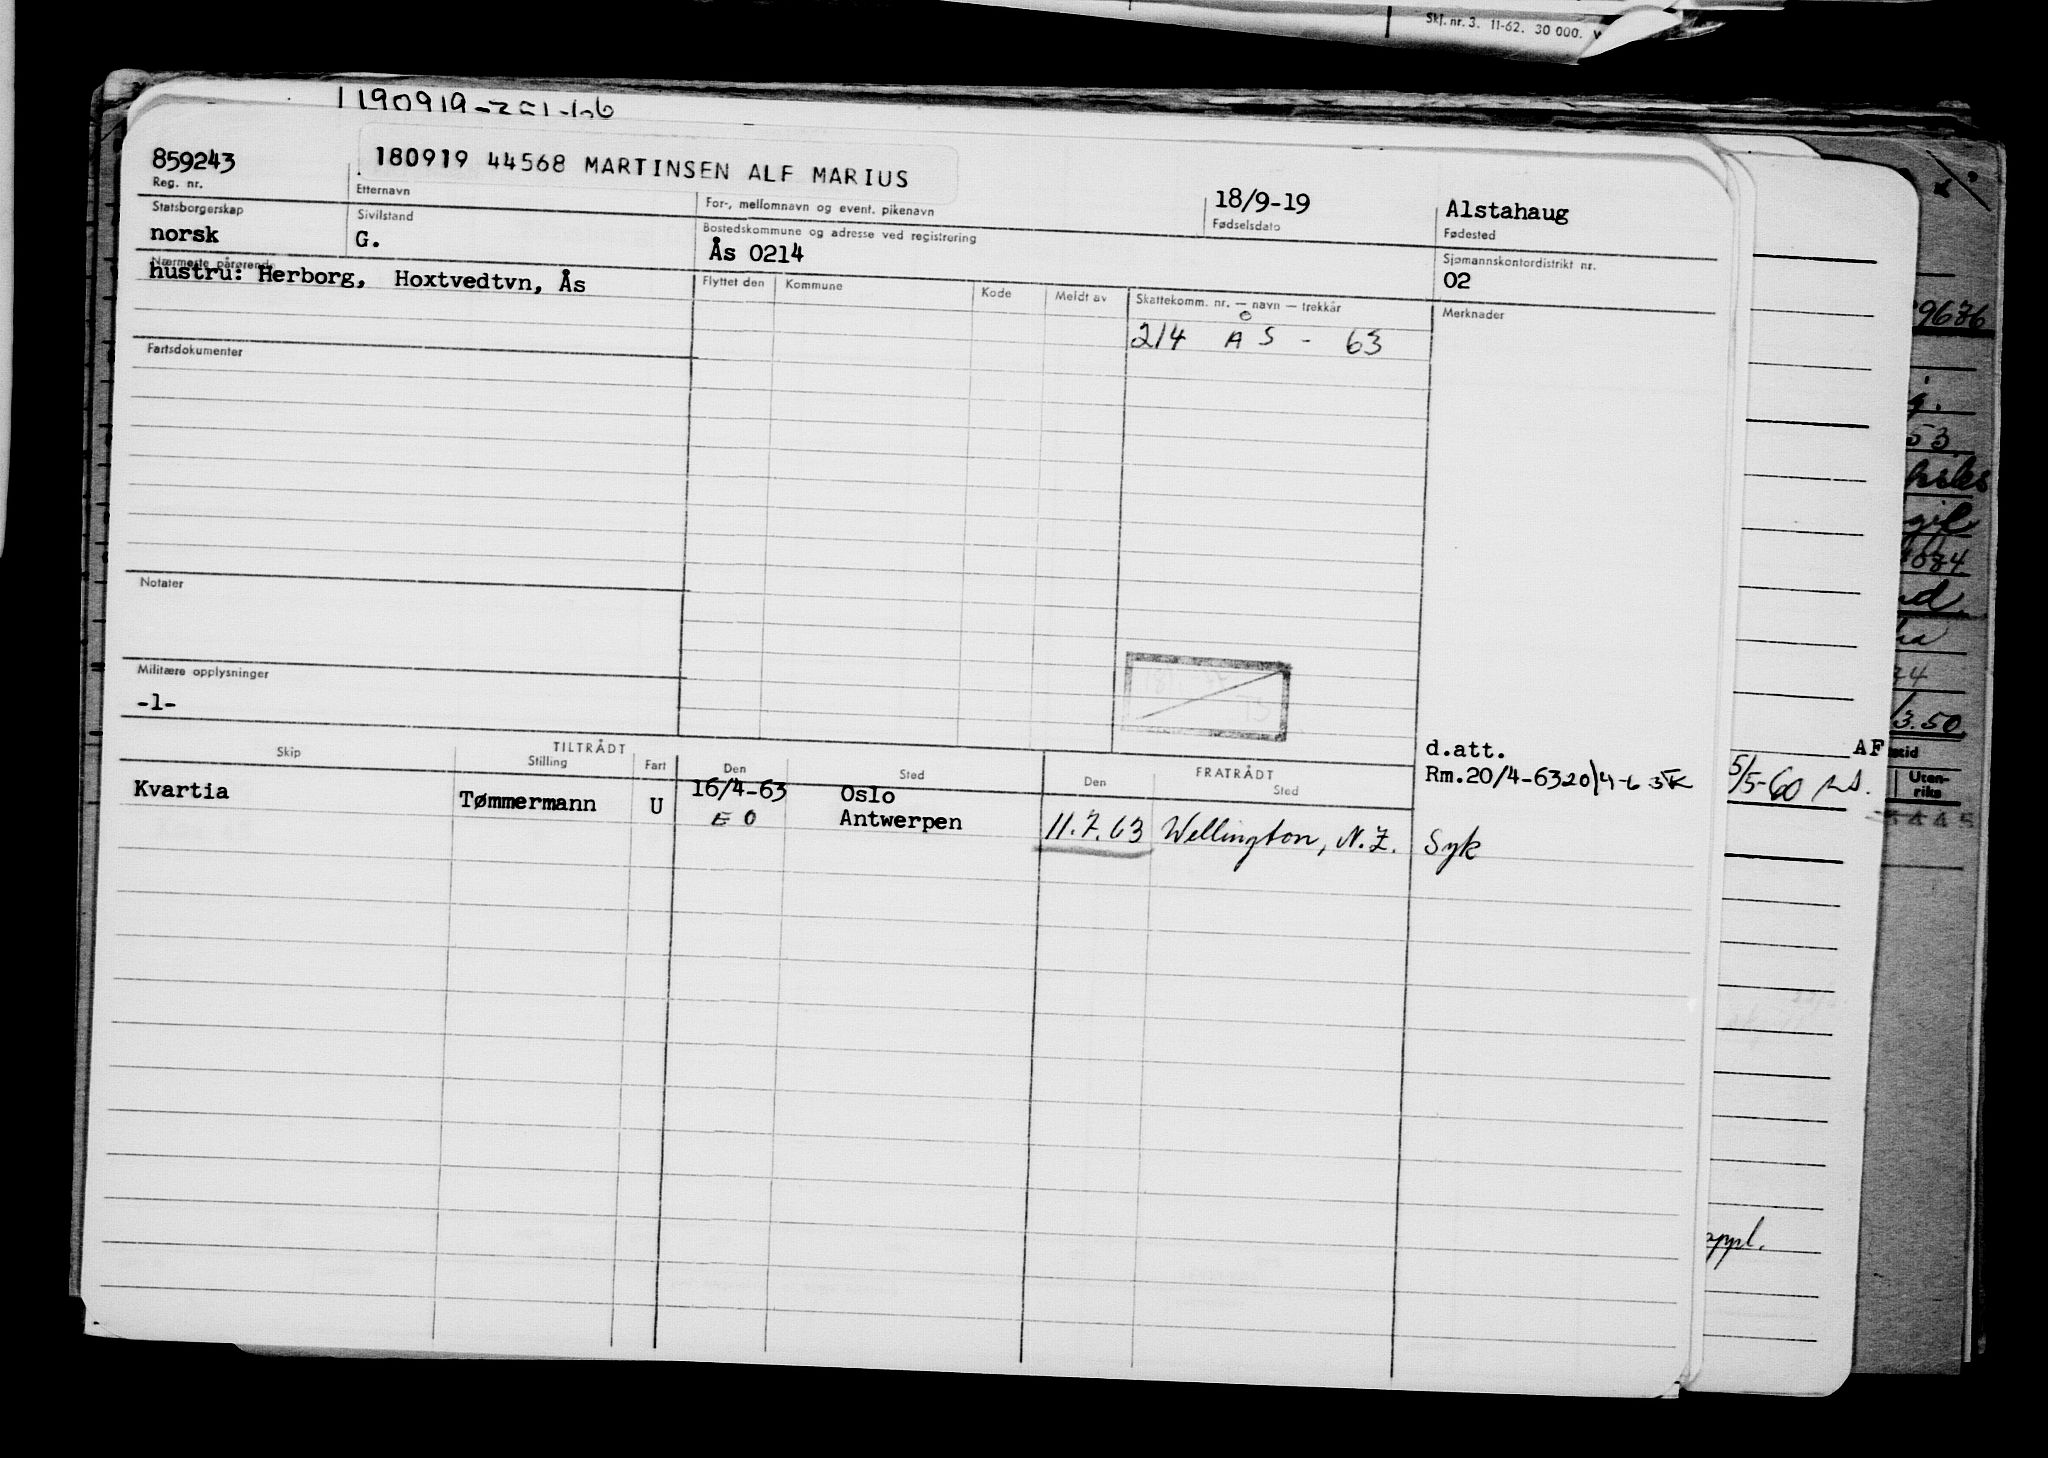 Skj. nr. 3. 11-62. 30 000.
859243
180919 44568 MARTINSEN ALF MARIUS
18/9-19
Alstahaug
Reg. nr.
Etternavn
For-, mellomnavn og event. pikenavn
Fødselsdato
Fødested
Statsborgerskap
Sivilstand
Bostedskommune og adresse ved registrering
Sjømannskontordistrikt nr.
norsk
G.
Ås 0214
02
Nærmeste pårørende
hustru: Herborg, Hoxtvedtvn, Ås
Flyttet den
Kommune
Kode
Meldt av
Skattekomm. nr. — navn — trekkår
Merknader
214 ÅS - 63
Fartsdokumenter
Notater
Militære opplysninger
-1-
TILTRÅDT
FRATRÅDT
Skip
Stilling
Fart
Den
Sted
Den
Sted
d.att.
Rm.20/4-63
Kvartia
Tømmermann
U
16/4-63
Oslo
E O
Antwerpen
11.7.63
Wellington, N.Z.
Syk
29676
53
4084
3.50
AF
5/5-60
Uten-
riks
5445
appl.